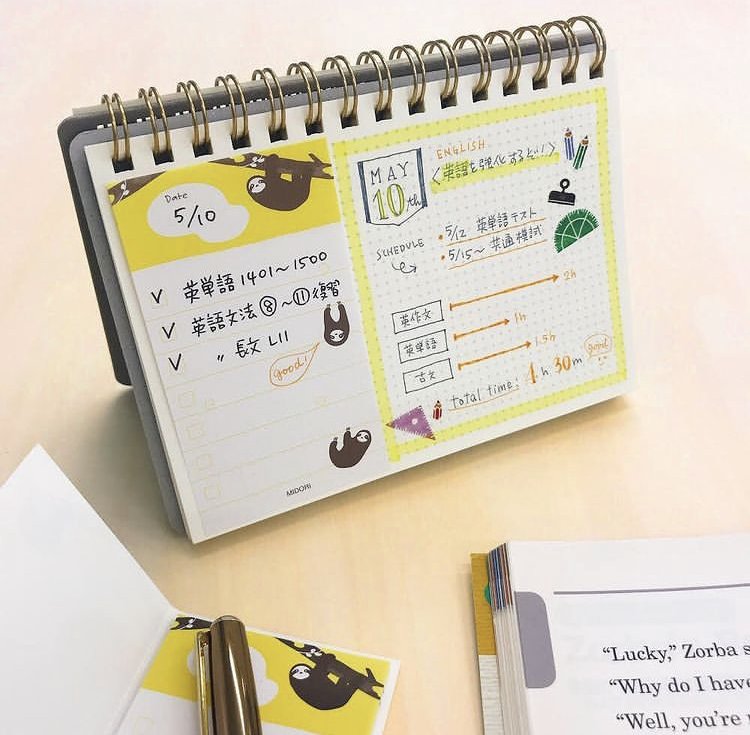 Date
5/10
✓ 英単語 1401〜1500
✓ 英語文法⑧〜⑪復習
✓ 〃 長文 L11
good!
MIDORI
MAY
10th
ENGLISH
〈英語を強化するぞ!〉
SCHEDULE
・5/12 英単語テスト
・5/15〜 共通模試
英作文 2h
英単語 1h
古文 1.5h
total time: 4h 30m
good
“Lucky,” Zorba s
“Why do I have
“Well, you're